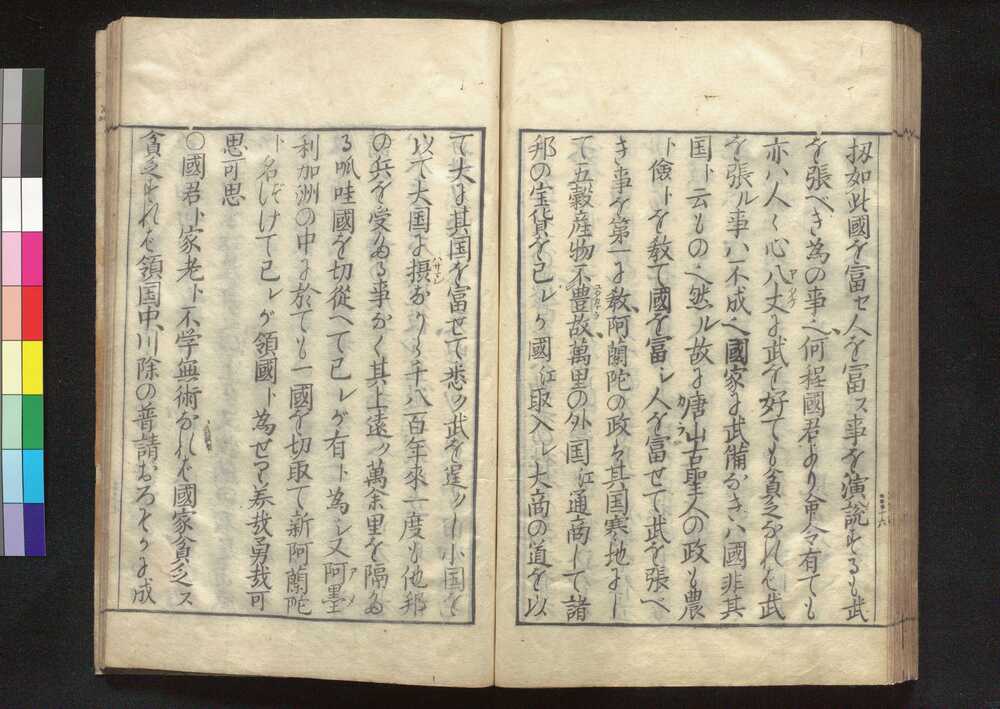 扨如此國を富セ人を富ス事を演説するも武
を張べき為の事へ何程國君より命令有ても
亦ハ人々心八丈に武を好ても貧乏なれば武
を張ル事ハ不成へ國家に武備なきハ國非其
国ト云ものへ然ル故に唐山古聖人の政も農
ト儉トを教て國を富シ人を富せて武を張べ
き事を第一に教阿蘭陀の政も其国寒地にし
て五穀産物不豊故萬里の外国江通商して諸
邦の宝貨を己レが國江取入レ大商の道を以
十六
て大に其国を富せて悉ク武を逞クし小国を
以て大国に摂なり千八百年來一度も他邦
の兵を受ざる事なく其上遠ク萬余里を隔ざ
る呱哇國を切從へて己レが有ト為シ又阿墨
利加洲の中に於ても一國を切取て新阿蘭陀
ト名づけて己レが領國ト為せり善哉勇哉可
思可思
〇國君ト家老ト不学無術なれば國家貧乏ス
貧乏すれば領国中川除の普請おろそかに成